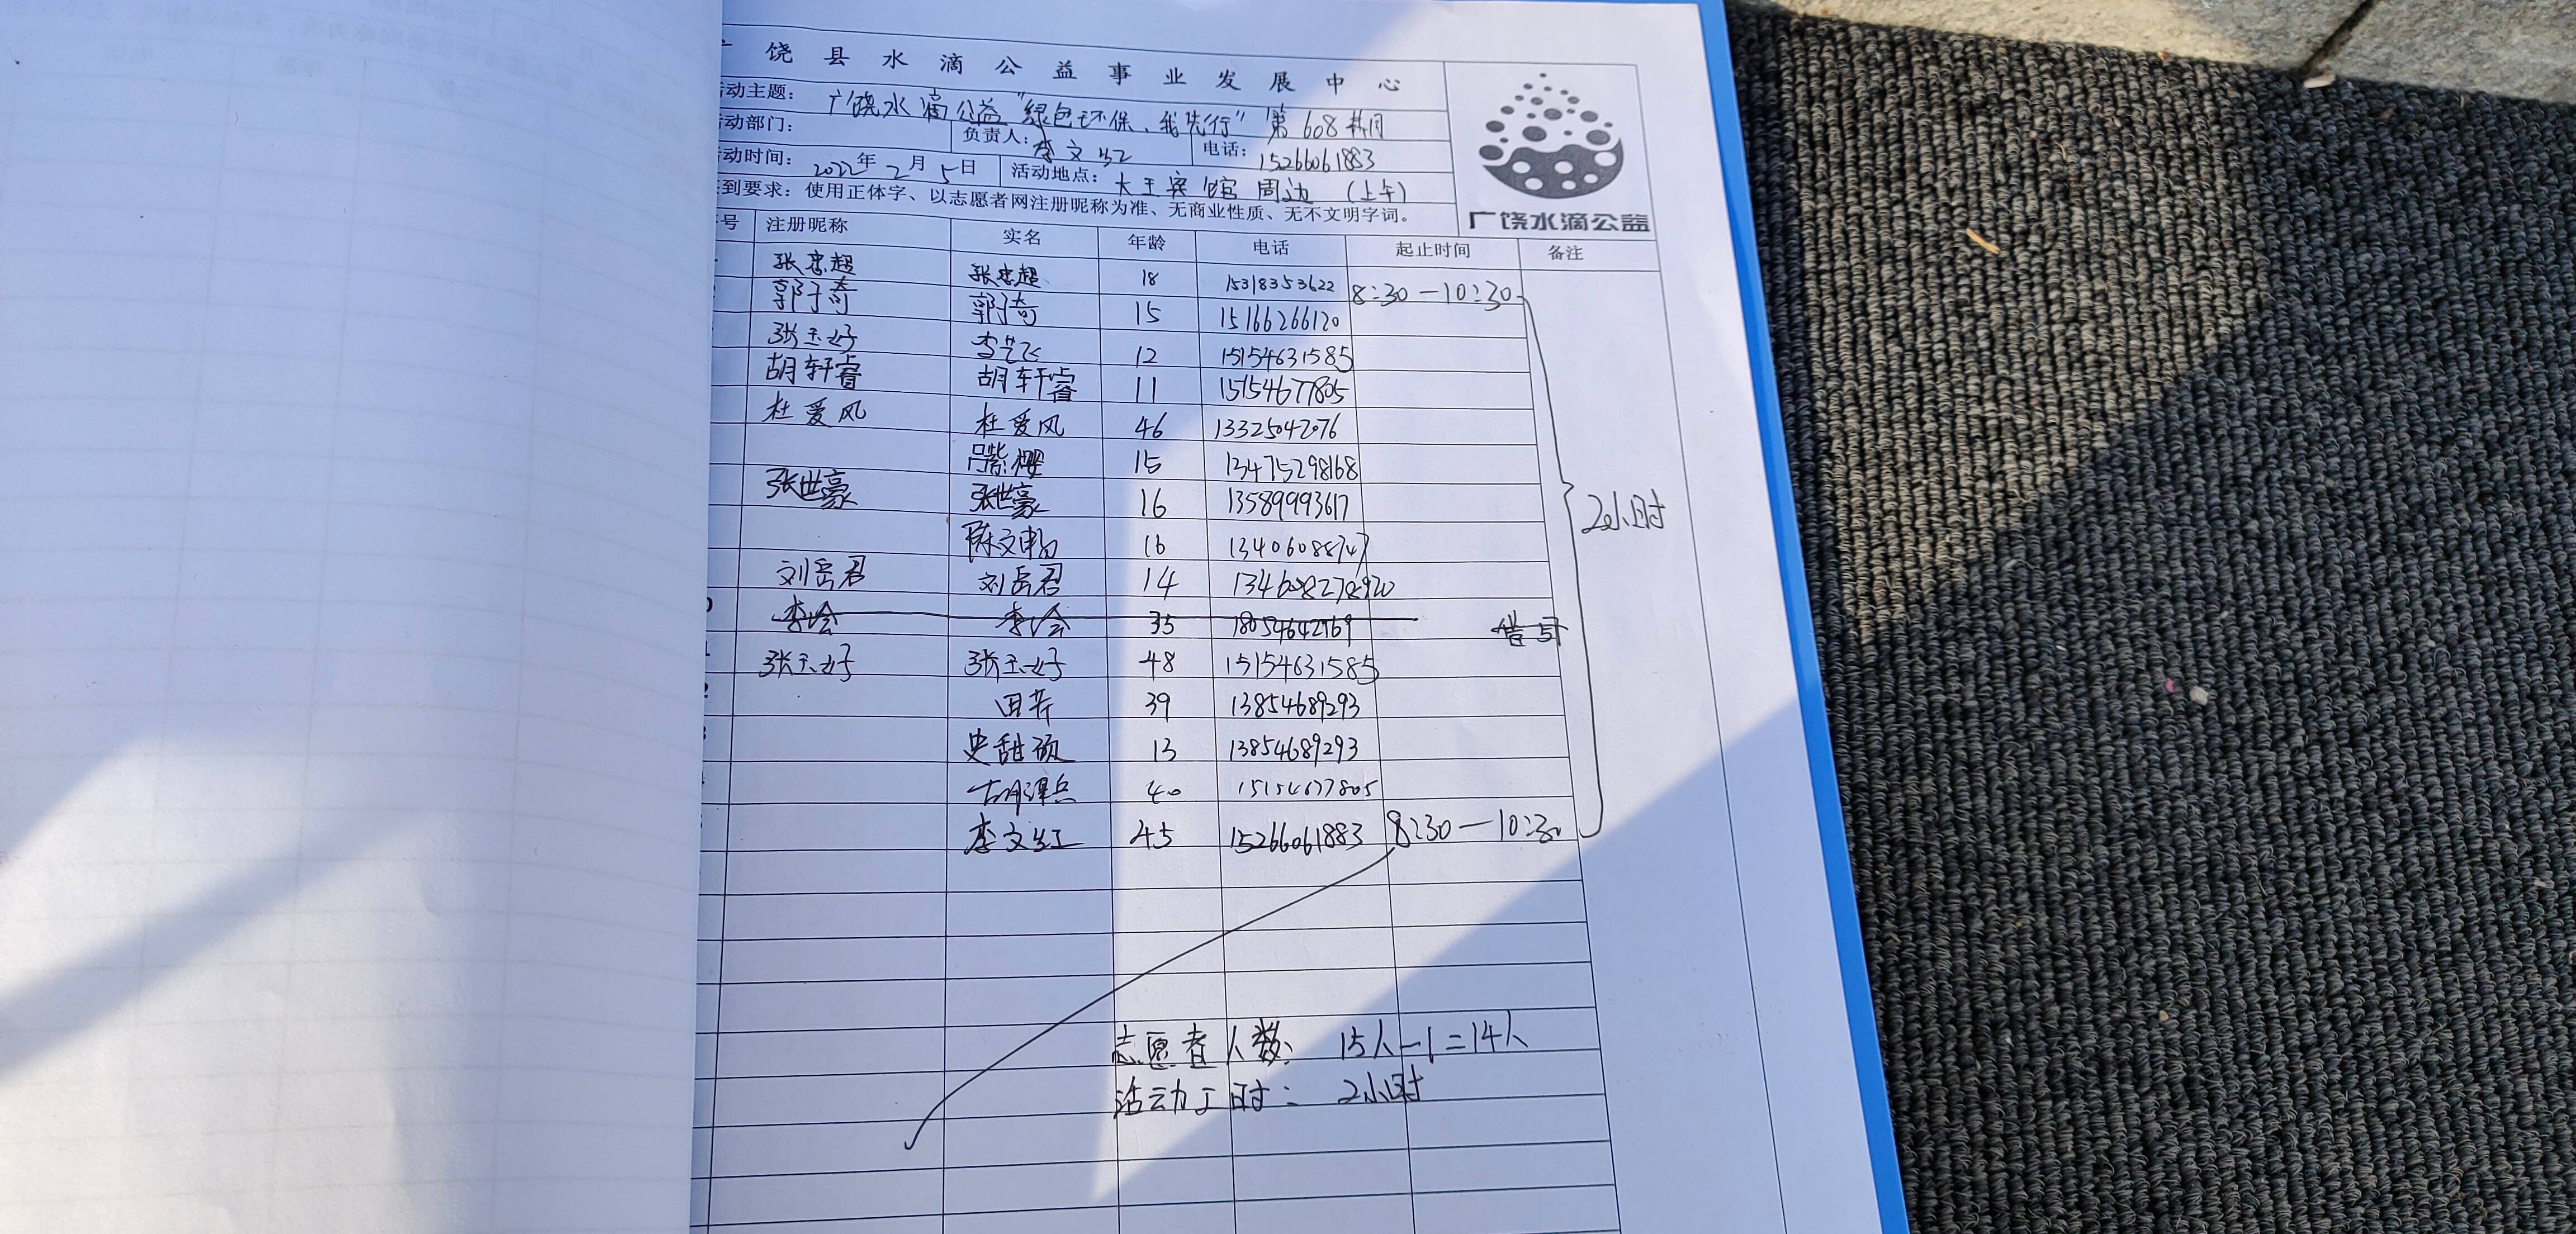 饶县水滴公益事业发展中心
动主题：广饶水滴公益“绿色环保、我先行”第608期
动部门： 负责人：李文红 电话：15266061883
动时间：2022年2月5日 活动地点：大王宾馆周边（上午）
到要求：使用正体字、以志愿者网注册昵称为准、无商业性质、无不文明字词。
广饶水滴公益
号 注册昵称 实名 年龄 电话 起止时间 备注
张忠超 张忠超 18 15318353622 8:30—10:30
郭子奇 郭子奇 15 15166266120
张玉好 李艺飞 12 15154631585
胡轩睿 胡轩睿 11 15154677805
杜爱风 杜爱风 46 13325042076
吕紫樱 15 13475298168
张世豪 张世豪 16 13589993617
2小时
陈文 16
刘岳君 刘岳君 14
李 李 35 18054642769
张玉好 张玉好 48 15154631585
田芹 39 13854689293
史甜硕 13 13854689293
胡泽兵 40 15154677805
李文红 45 15266061883 8:30—10:30
志愿者人数： 15人-1=14人
活动工时： 2小时